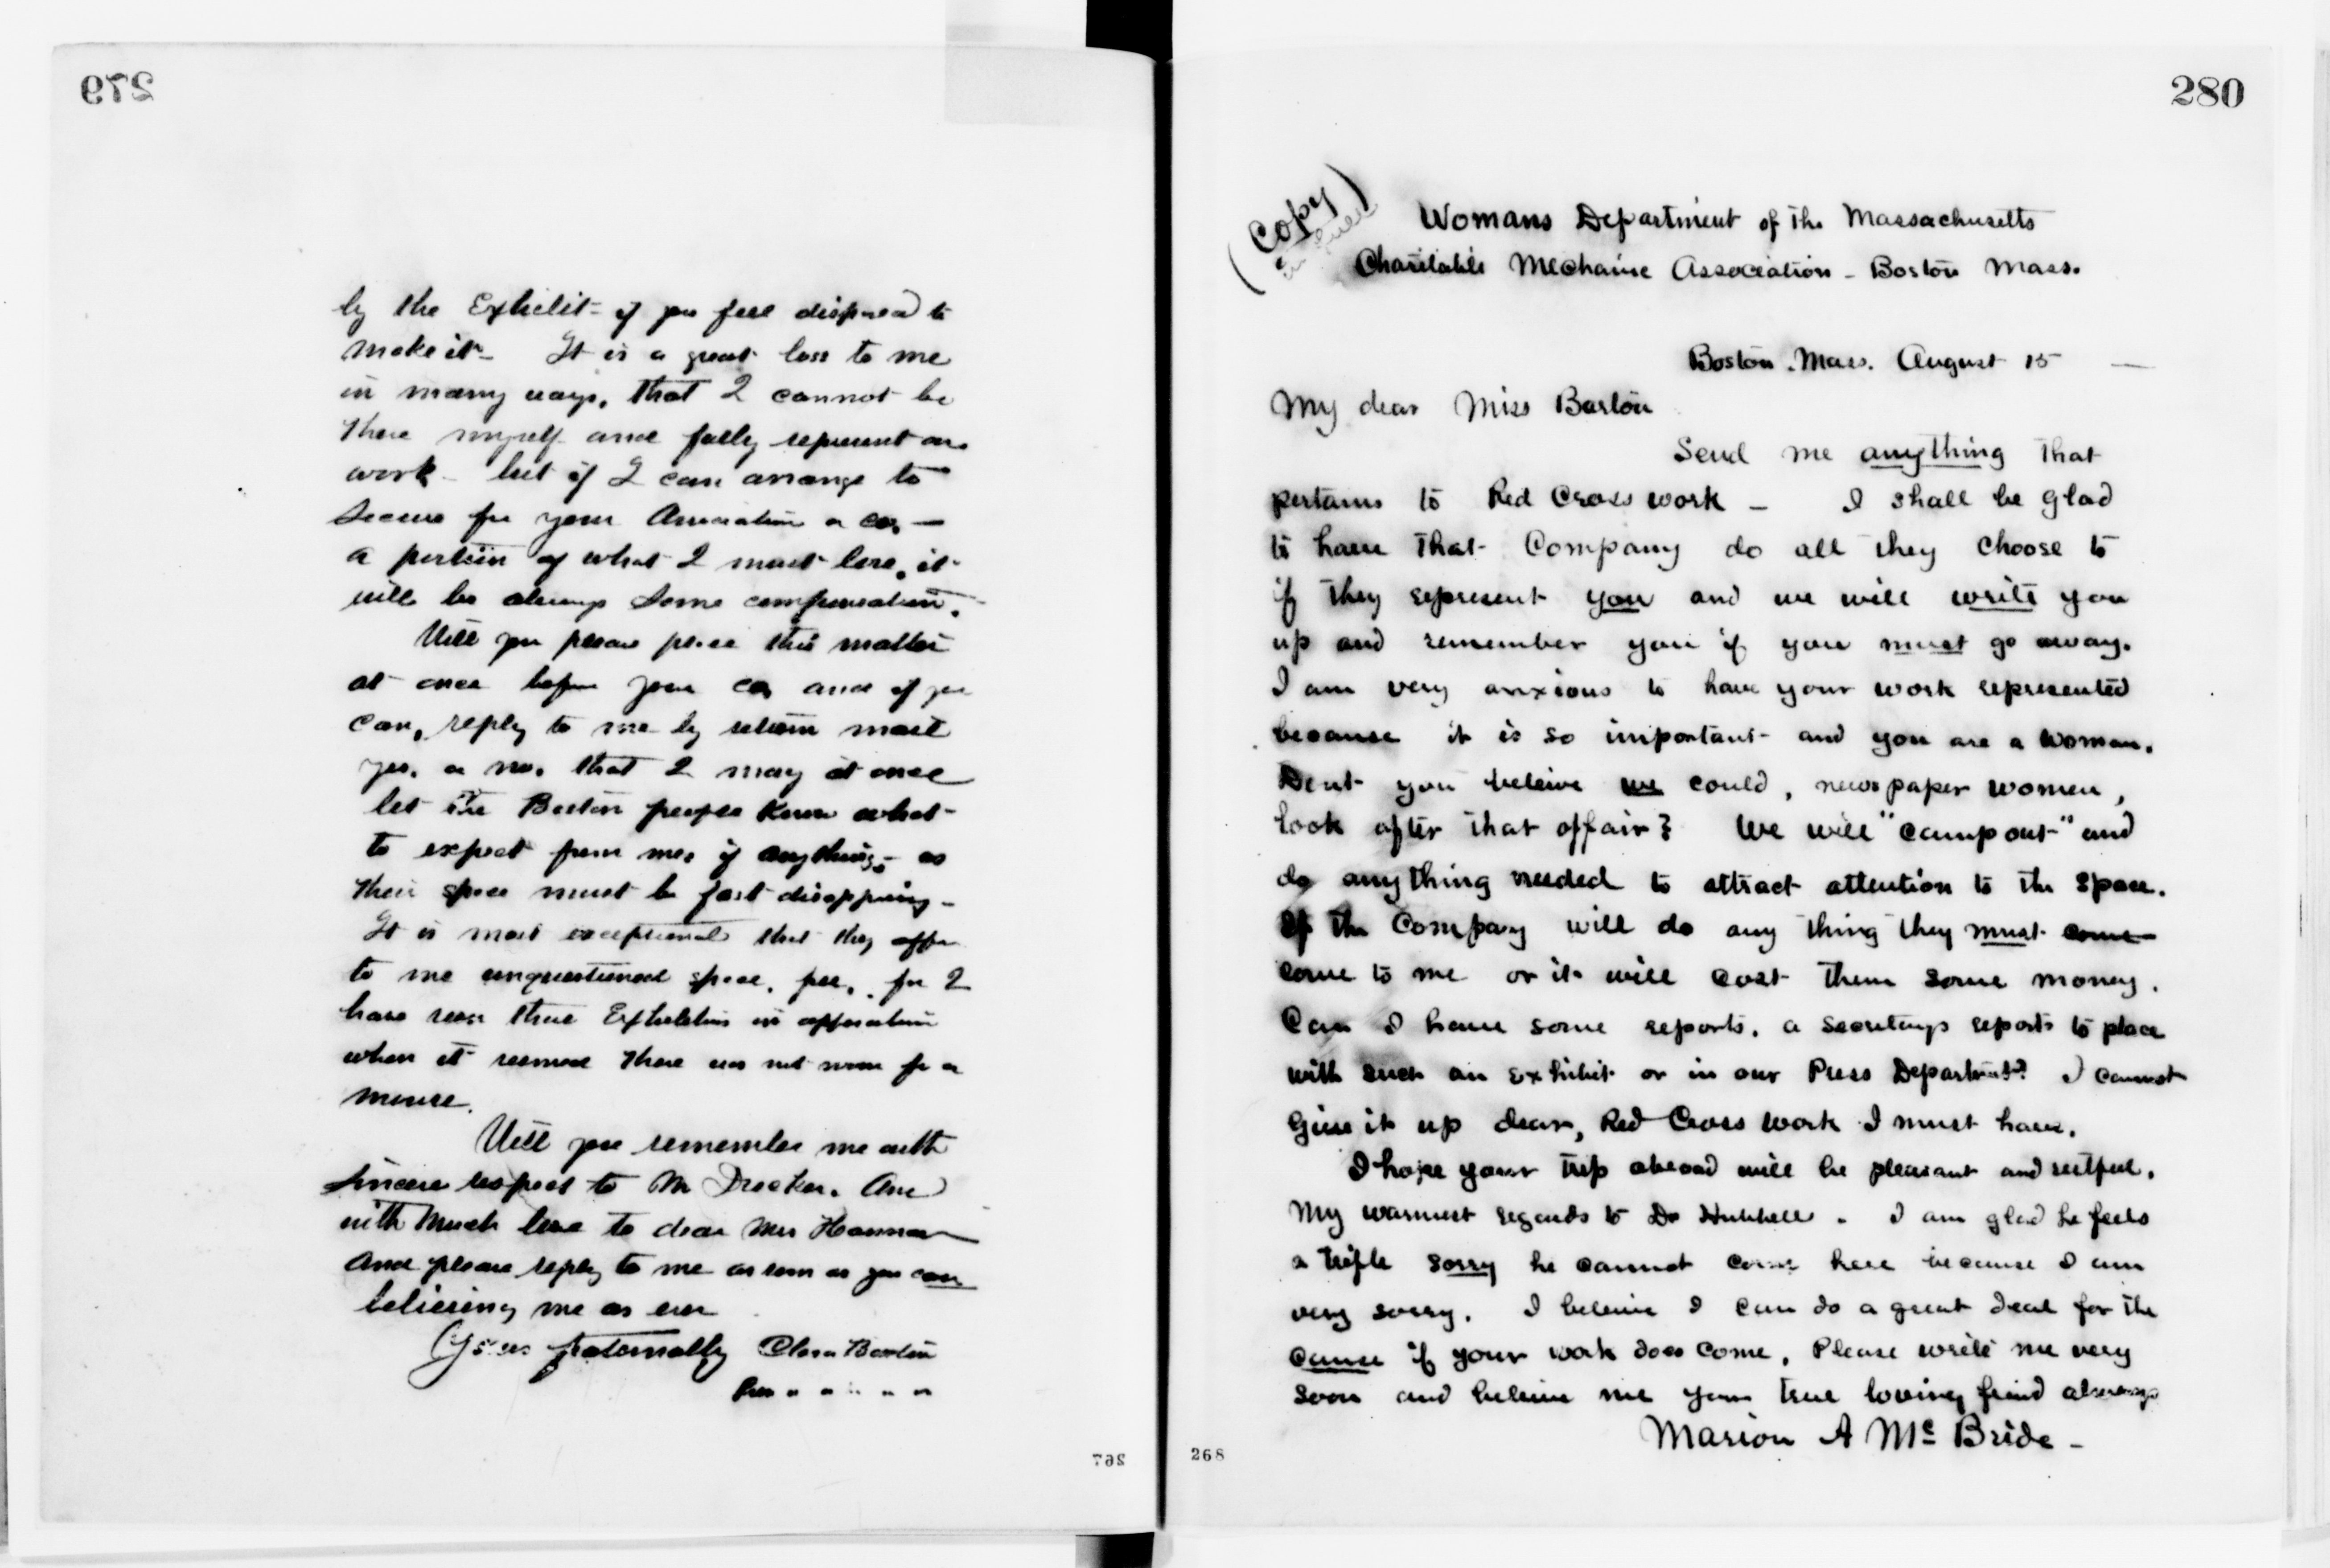 279
by the Exhibit- if you feel disposed to
make it- It is a great loss to me
in many ways, that I cannot be
there myself and fully represent our
work- but if I can arrange to
secure for your Association or co, —
a portion of what I must lose, it
will be always some compensation.
Will you please place this matter
at once before your co, and if you
can, reply to me by return mail
yes, or no, that I may at once
let the Boston people know what
to expect from me, if anything,- as
their space must be fast disappearing-
It is most exceptional that they offer
to me unquestioned space, free, for I
have seen those Exhibitions in operation
when it seemed there was not room for a
mouse.
Will you remember me with
sincere respect to Mr Drecker. And
with much love to dear Mrs Hannar
And please reply to me as soon as you can
believing me as ever
Yours fraternally Clara Barton
Pres " " " " "
267
280
(Copy)
Womans Department of the Massachusetts
Charitable Mechanic Association - Boston Mass.
Boston. Mass. August 15 —
My dear Miss Barton
Send me anything that
pertains to Red Cross work - I shall be glad
to have that Company do all they choose to
if they represent you and we will write you
up and remember you if you must go away.
I am very anxious to have your work represented
because it is so important- and you are a woman.
Dont you beleive we could, newspaper women,
look after that affair? We will "camp out" and
do anything needed to attract attention to the space.
If the Company will do any thing they must come
come to me or it will cost them some money.
Can I have some reports, a secretarys reports to place
with such an exhibit or in our Press Department? I cannot
give it up dear, Red Cross work I must have.
I hope your trip abroad will be pleasant and restful.
My warmest regards to Dr Hubbell. I am glad he feels
a trifle sorry he cannot come here because I am
very sorry. I beleive I can do a great deal for the
cause if your work does come. Please write me very
soon and beleive me your true loving freind always
Marion A McBride-
268